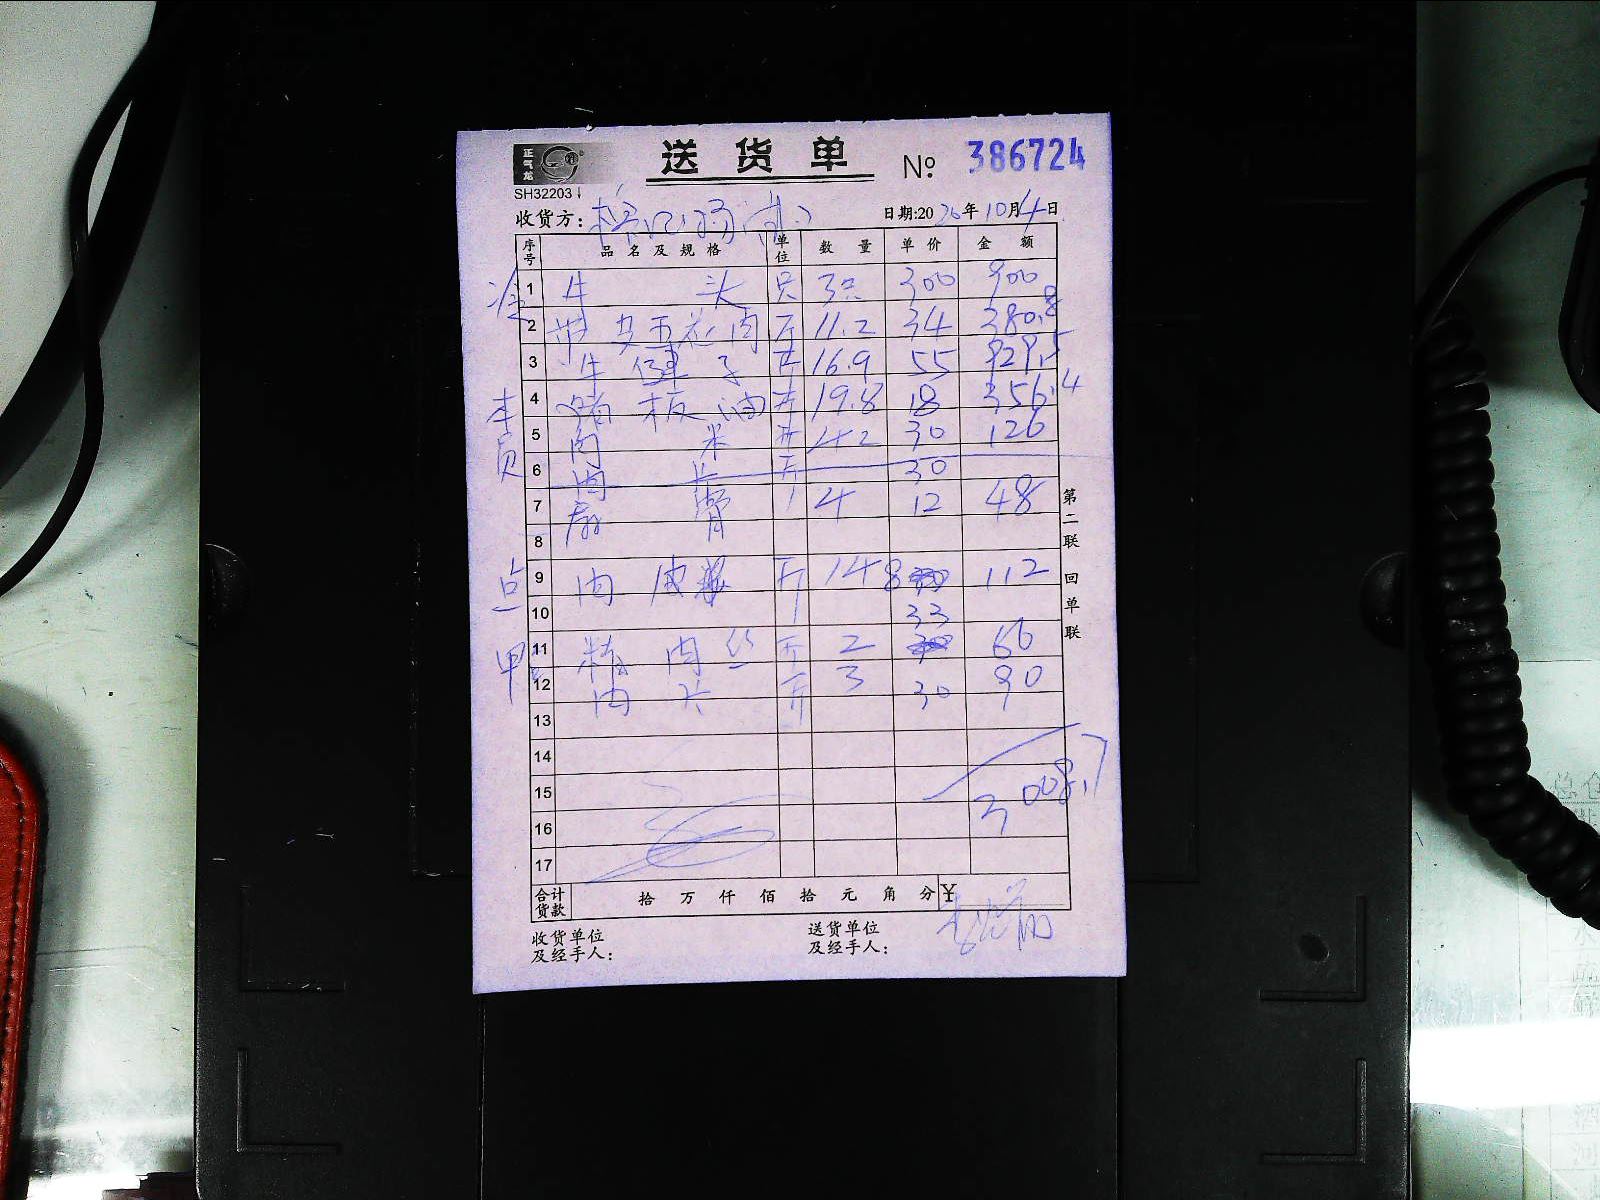 正气龙
送货单 № 386724
SH32203
收货方： 日期:2026年10月4日
序号 品名及规格 单位 数量 单价 金额
1 牛头 只 3只 300 900
2 带皮五花肉 斤 11.2 34 380.8
3 牛健子 斤 16.9 55 929.5
4 猪板油 斤 19.8 18 356.4
员
5 肉米 斤 42 30 126
6 肉片 斤 30
7 扇骨 4 12 48
8
点
9 肉皮 斤 14 8 112
10 33
11 精肉丝 斤 2 66
12 肉片 斤 3 30 90
13
14
15 3008.7
16
17
合计货款 拾万仟佰拾元角分 ¥
收货单位及经手人： 送货单位及经手人：
第二联 回单联